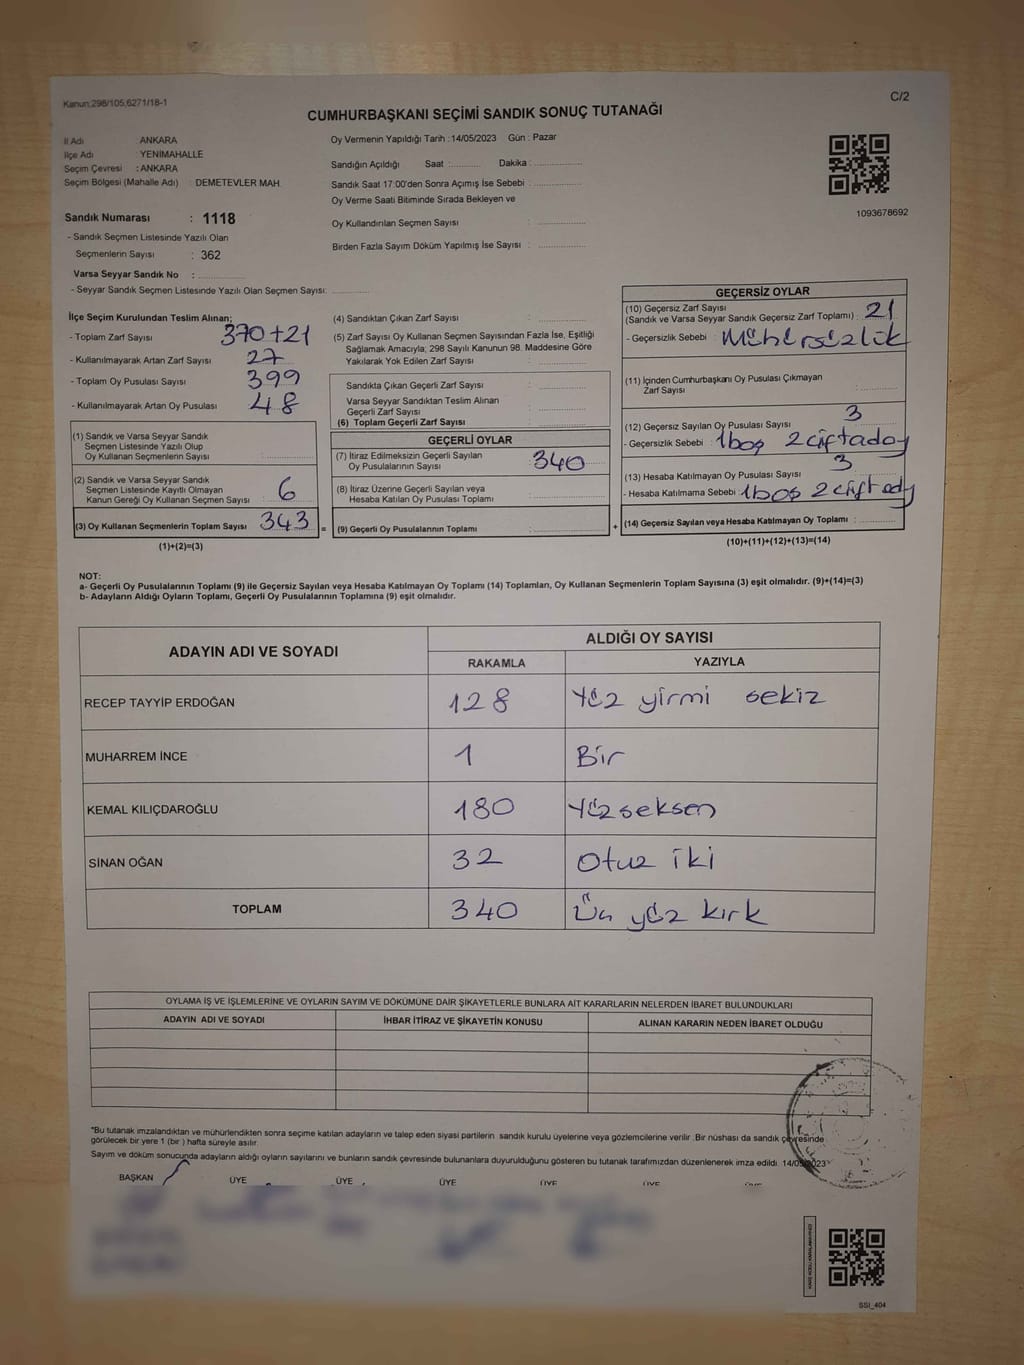 Kanun;298/105,6271/18-1
C/2
CUMHURBAŞKANI SEÇİMİ SANDIK SONUÇ TUTANAĞI
İl Adı ANKARA
İlçe Adı : YENİMAHALLE
Seçim Çevresi : ANKARA
Seçim Bölgesi (Mahalle Adı) : DEMETEVLER MAH.
Sandık Numarası : 1118
- Sandık Seçmen Listesinde Yazılı Olan
Seçmenlerin Sayısı : 362
Varsa Seyyar Sandık No :
- Seyyar Sandık Seçmen Listesinde Yazılı Olan Seçmen Sayısı:
Oy Vermenin Yapıldığı Tarih : 14/05/2023 Gün : Pazar
Sandığın Açıldığı Saat : Dakika :
Sandık Saat 17:00'den Sonra Açımış İse Sebebi :
Oy Verme Saati Bitiminde Sırada Bekleyen ve
Oy Kullandırılan Seçmen Sayısı :
Birden Fazla Sayım Döküm Yapılmış İse Sayısı :
1093678692
İlçe Seçim Kurulundan Teslim Alınan;
- Toplam Zarf Sayısı 370+21
- Kullanılmayarak Artan Zarf Sayısı 27
- Toplam Oy Pusulası Sayısı 399
- Kullanılmayarak Artan Oy Pusulası 48
(1) Sandık ve Varsa Seyyar Sandık
Seçmen Listesinde Yazılı Olup
Oy Kullanan Seçmenlerin Sayısı :
(2) Sandık ve Varsa Seyyar Sandık
Seçmen Listesinde Kayıtlı Olmayan
Kanun Gereği Oy Kullanan Seçmen Sayısı : 6
(3) Oy Kullanan Seçmenlerin Toplam Sayısı : 343 =
(1)+(2)=(3)
(4) Sandıktan Çıkan Zarf Sayısı :
(5) Zarf Sayısı Oy Kullanan Seçmen Sayısından Fazla İse, Eşitliği
Sağlamak Amacıyla; 298 Sayılı Kanunun 98. Maddesine Göre
Yakılarak Yok Edilen Zarf Sayısı :
Sandıkta Çıkan Geçerli Zarf Sayısı :
Varsa Seyyar Sandıktan Teslim Alınan
Geçerli Zarf Sayısı :
(6) Toplam Geçerli Zarf Sayısı :
GEÇERLİ OYLAR
(7) İtiraz Edilmeksizin Geçerli Sayılan
Oy Pusulalarının Sayısı : 340
(8) İtiraz Üzerine Geçerli Sayılan veya
Hesaba Katılan Oy Pusulası Toplamı :
(9) Geçerli Oy Pusulalarının Toplamı : +
GEÇERSİZ OYLAR
(10) Geçersiz Zarf Sayısı
(Sandık ve Varsa Seyyar Sandık Geçersiz Zarf Toplamı) : 21
- Geçersizlik Sebebi : Mühürsüzlük
(11) İçinden Cumhurbaşkanı Oy Pusulası Çıkmayan
Zarf Sayısı :
(12) Geçersiz Sayılan Oy Pusulası Sayısı : 3
- Geçersizlik Sebebi : 1 boş 2 çift aday
(13) Hesaba Katılmayan Oy Pusulası Sayısı : 3
- Hesaba Katılmama Sebebi : 1 boş 2 çift ady
(14) Geçersiz Sayılan veya Hesaba Katılmayan Oy Toplamı :
(10)+(11)+(12)+(13)=(14)
NOT:
a- Geçerli Oy Pusulalarının Toplamı (9) ile Geçersiz Sayılan veya Hesaba Katılmayan Oy Toplamı (14) Toplamları, Oy Kullanan Seçmenlerin Toplam Sayısına (3) eşit olmalıdır. (9)+(14)=(3)
b- Adayların Aldığı Oyların Toplamı, Geçerli Oy Pusulalarının Toplamına (9) eşit olmalıdır.
ADAYIN ADI VE SOYADI ALDIĞI OY SAYISI
RAKAMLA YAZIYLA
RECEP TAYYİP ERDOĞAN 128 Yüz yirmi sekiz
MUHARREM İNCE 1 Bir
KEMAL KILIÇDAROĞLU 180 Yüz seksen
SİNAN OĞAN 32 Otuz iki
TOPLAM 340 Üç yüz kırk
OYLAMA İŞ VE İŞLEMLERİNE VE OYLARIN SAYIM VE DÖKÜMÜNE DAİR ŞİKAYETLERLE BUNLARA AİT KARARLARIN NELERDEN İBARET BULUNDUKLARI
ADAYIN ADI VE SOYADI İHBAR İTİRAZ VE ŞİKAYETİN KONUSU ALINAN KARARIN NEDEN İBARET OLDUĞU
*Bu tutanak imzalandıktan ve mühürlendikten sonra seçime katılan adayların ve talep eden siyasi partilerin sandık kurulu üyelerine veya gözlemcilerine verilir .Bir nüshası da sandık çevresinde
görülecek bir yere 1 (bir ) hafta süreyle asılır.
Sayım ve döküm sonucunda adayların aldığı oyların sayılarını ve bunların sandık çevresinde bulunanlara duyurulduğunu gösteren bu tutanak tarafımızdan düzenlenerek imza edildi. 14/05/2023
BAŞKAN ÜYE ÜYE ÜYE ÜYE ÜYE
SSI_404